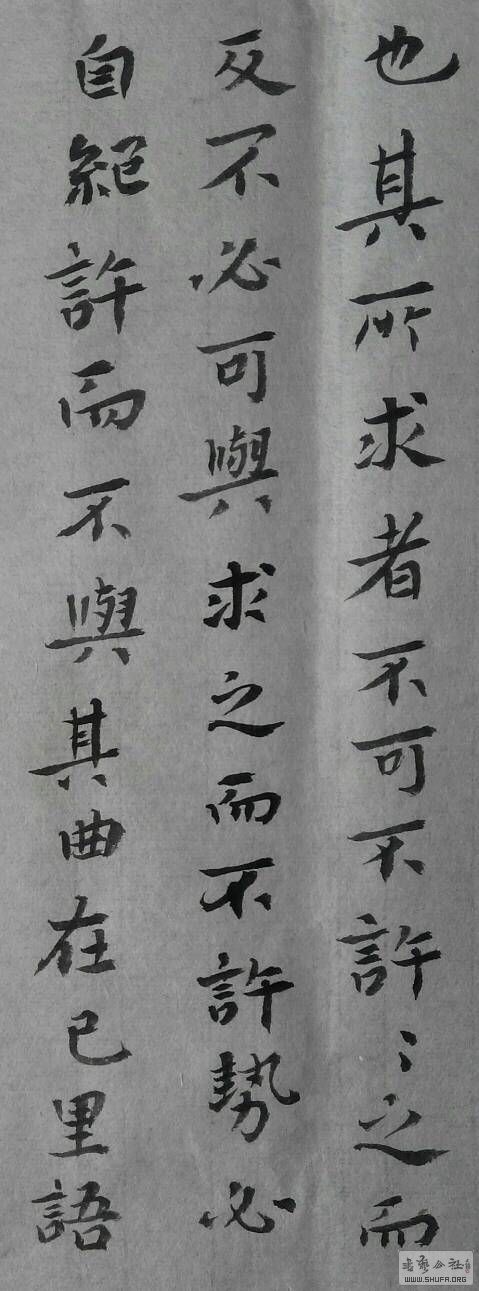 也其所求者不可不許〻之而
反不必可與求之而不許勢必
自絕許而不與其曲在己里語
書艺公社
WWW.SHUFA.ORG